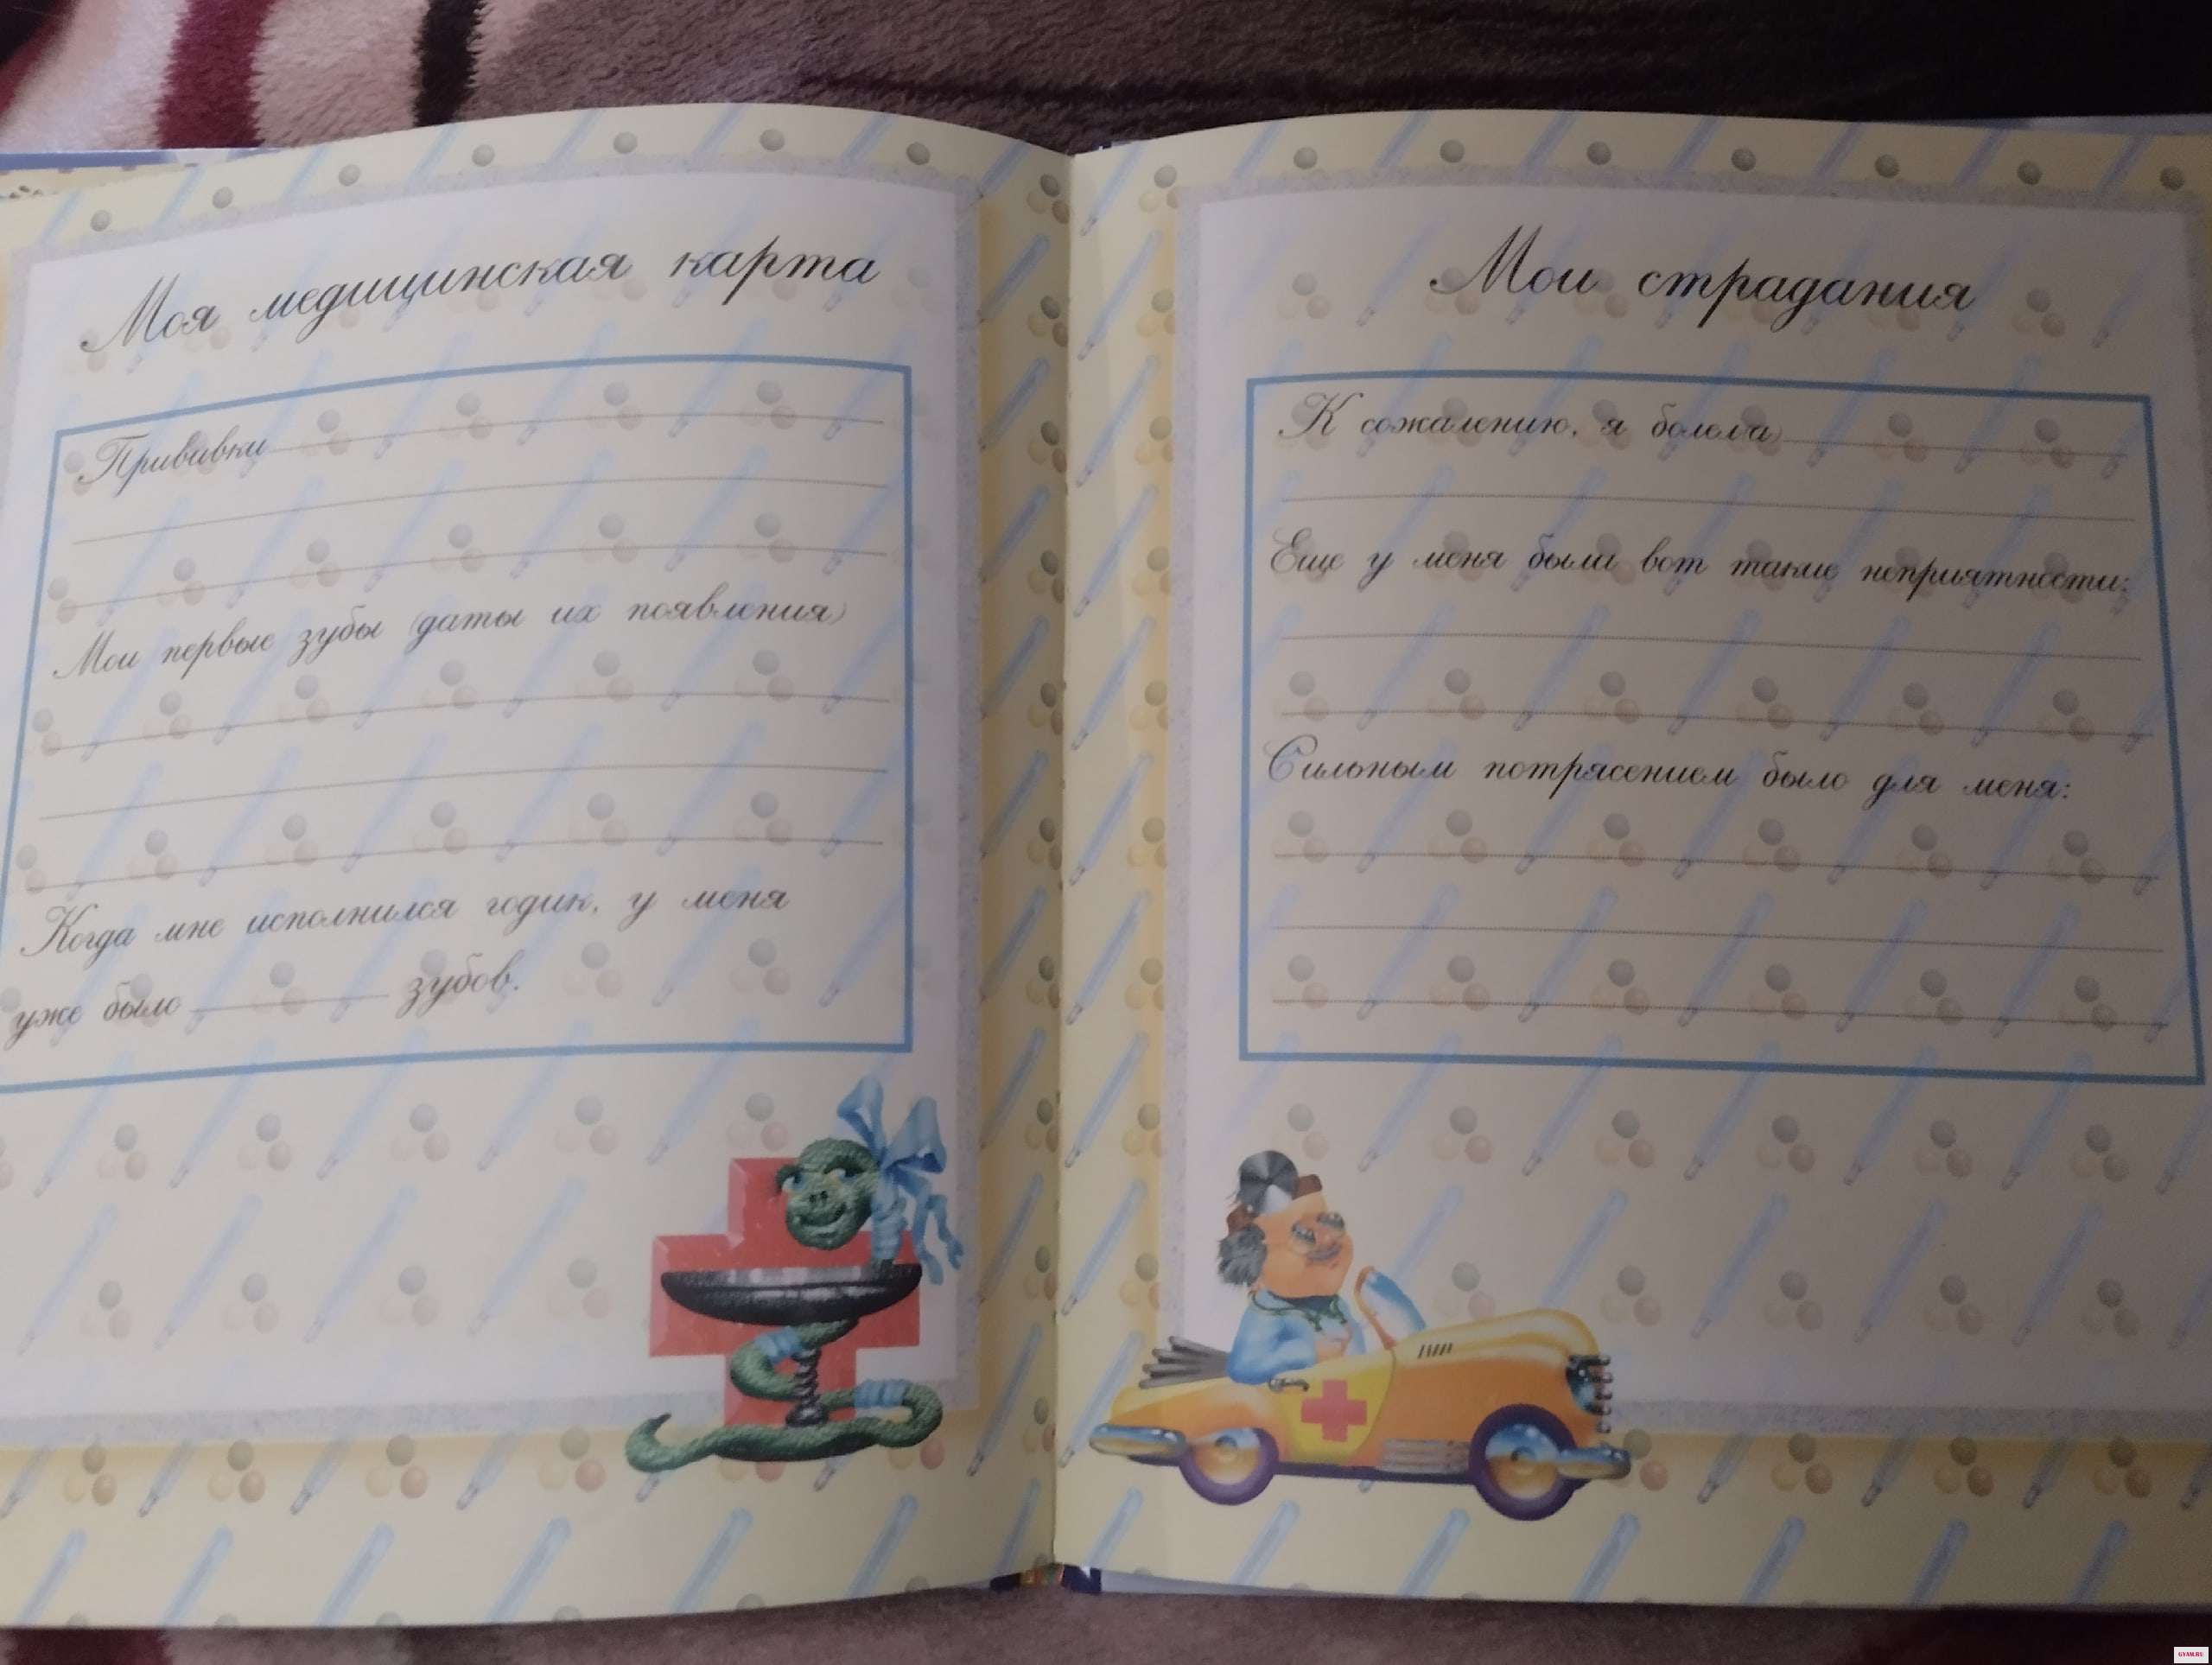 Моя медицинская карта
Прививки
Мои первые зубы (даты их появления)
Когда мне исполнился годик, у меня
уже было зубов.
Мои страдания
К сожалению, я болел(а)
Еще у меня были вот такие неприятности:
Сильным потрясением было для меня:
GYAM.RU